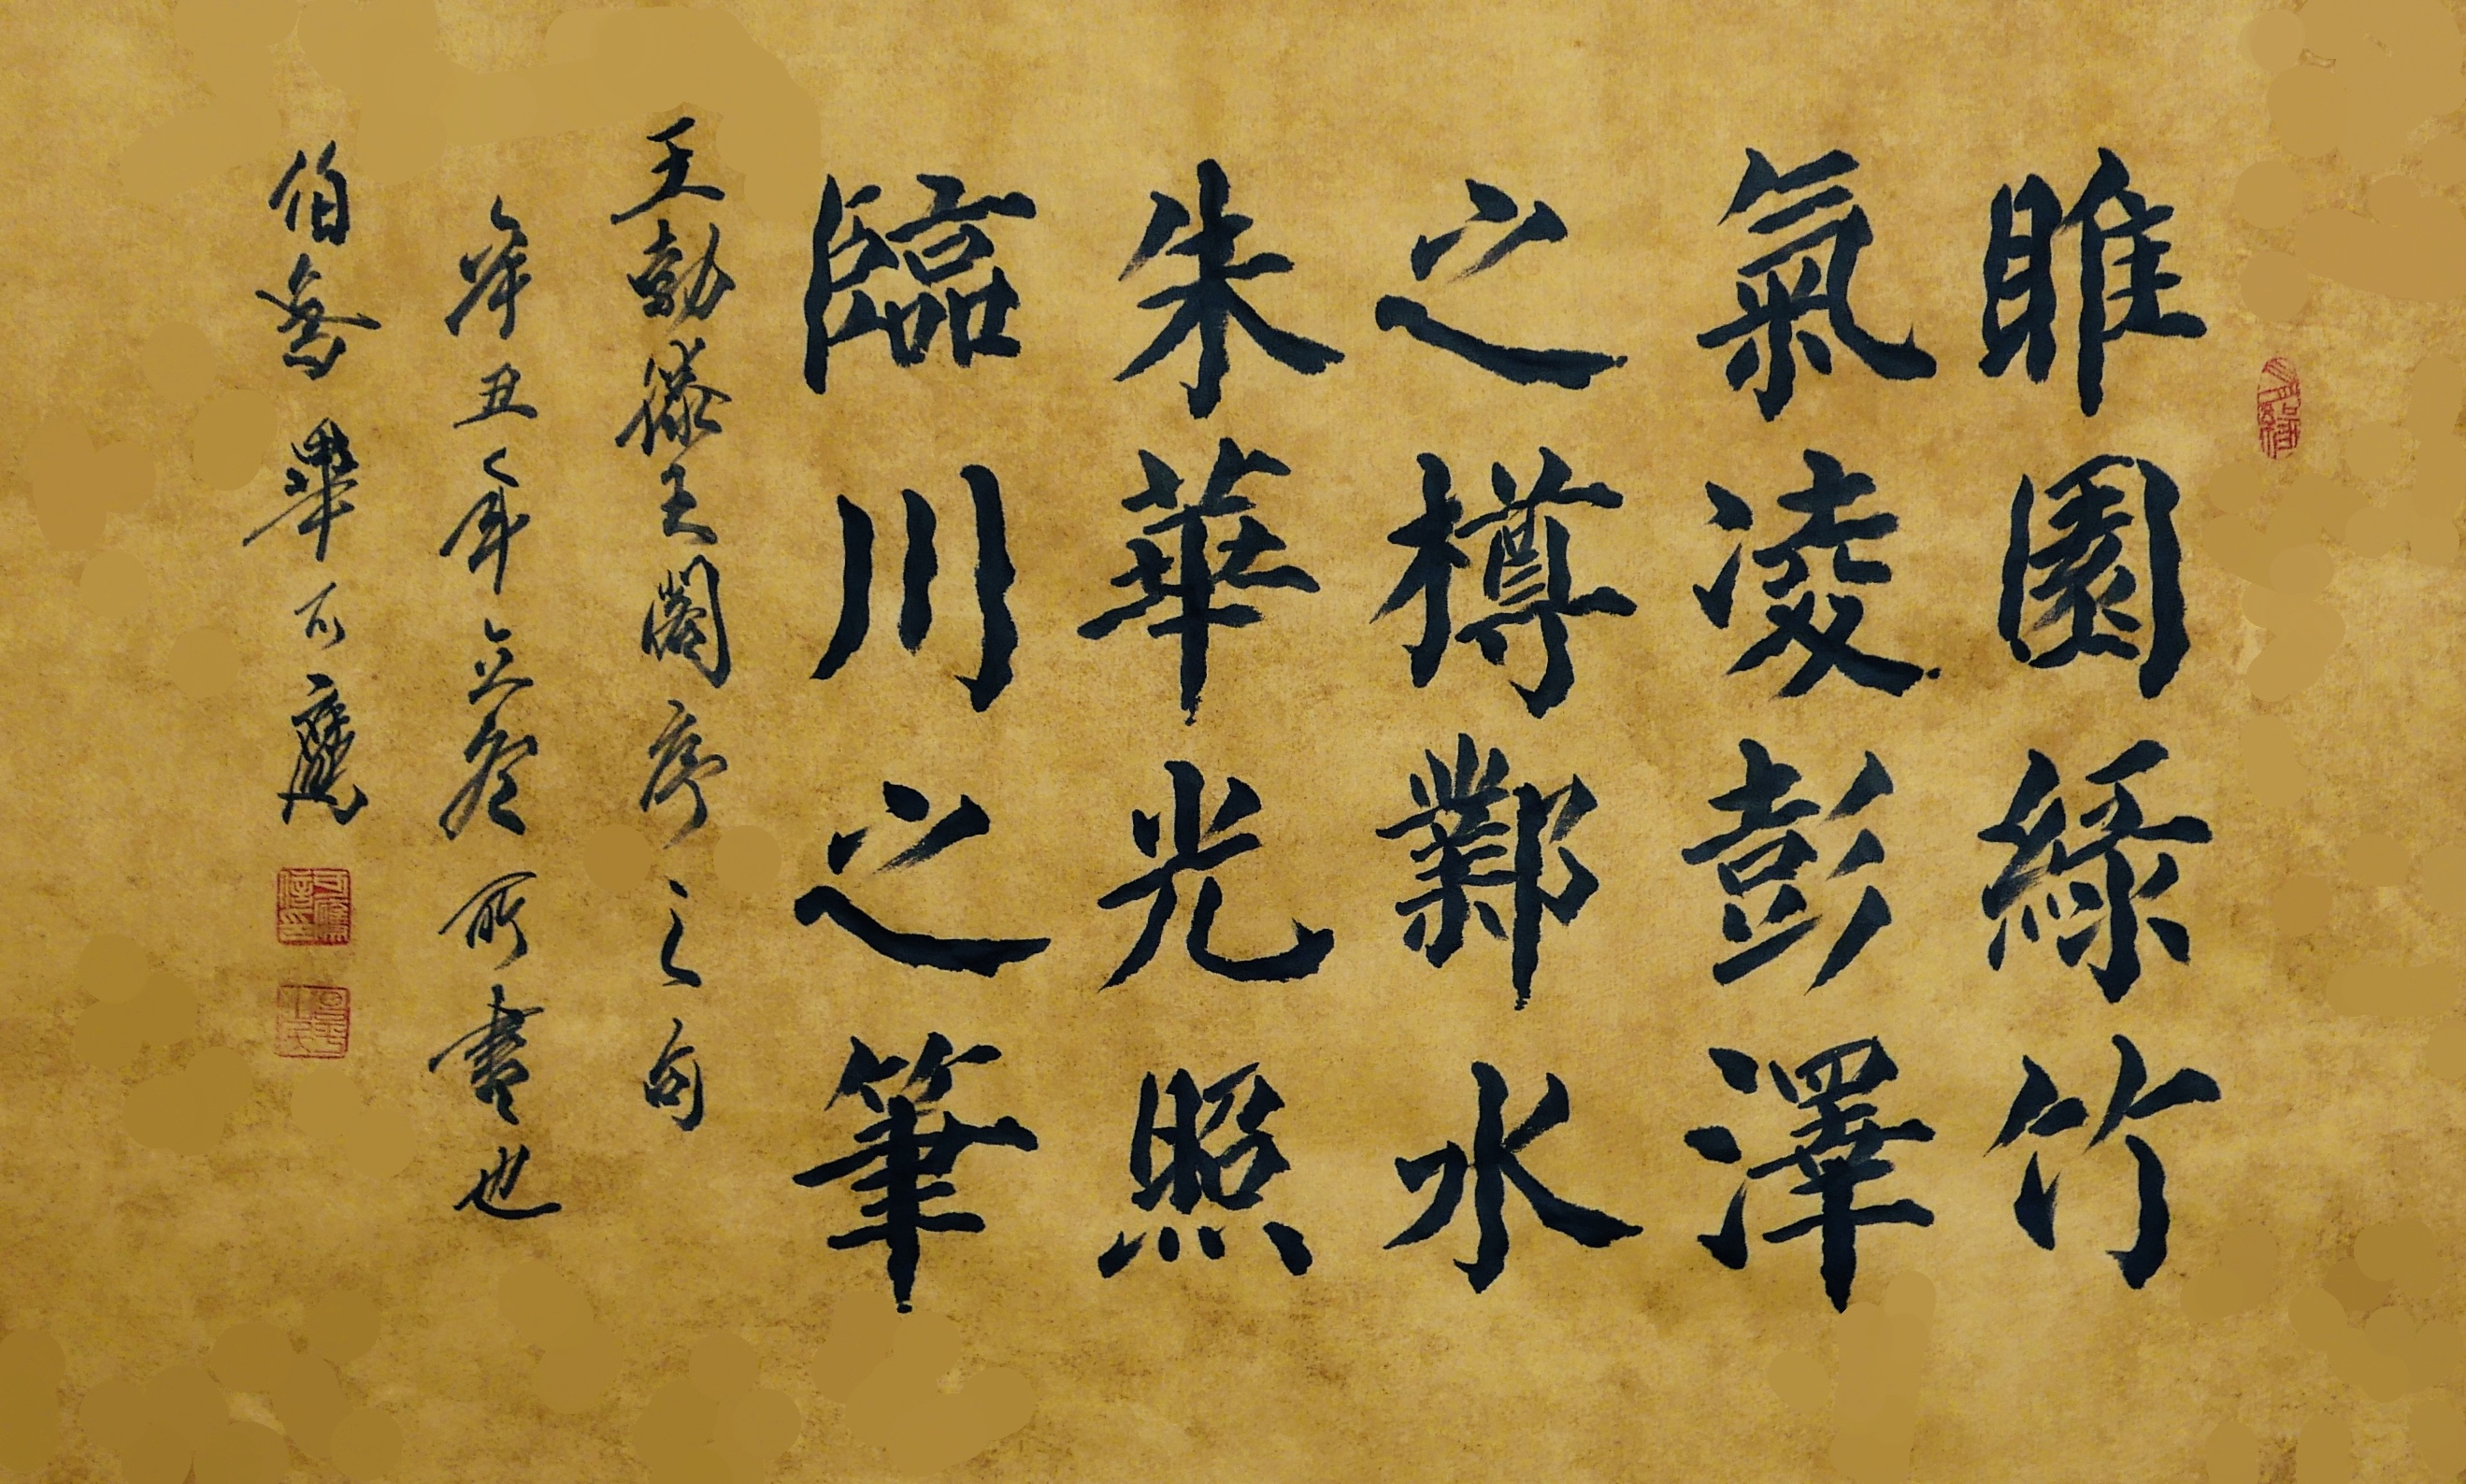 睢園綠竹
氣凌彭澤
之樽鄴水
朱華光照
臨川之筆
王勃滕王閣序之句
辛丑年立冬所書也
伯喬畢可鷹